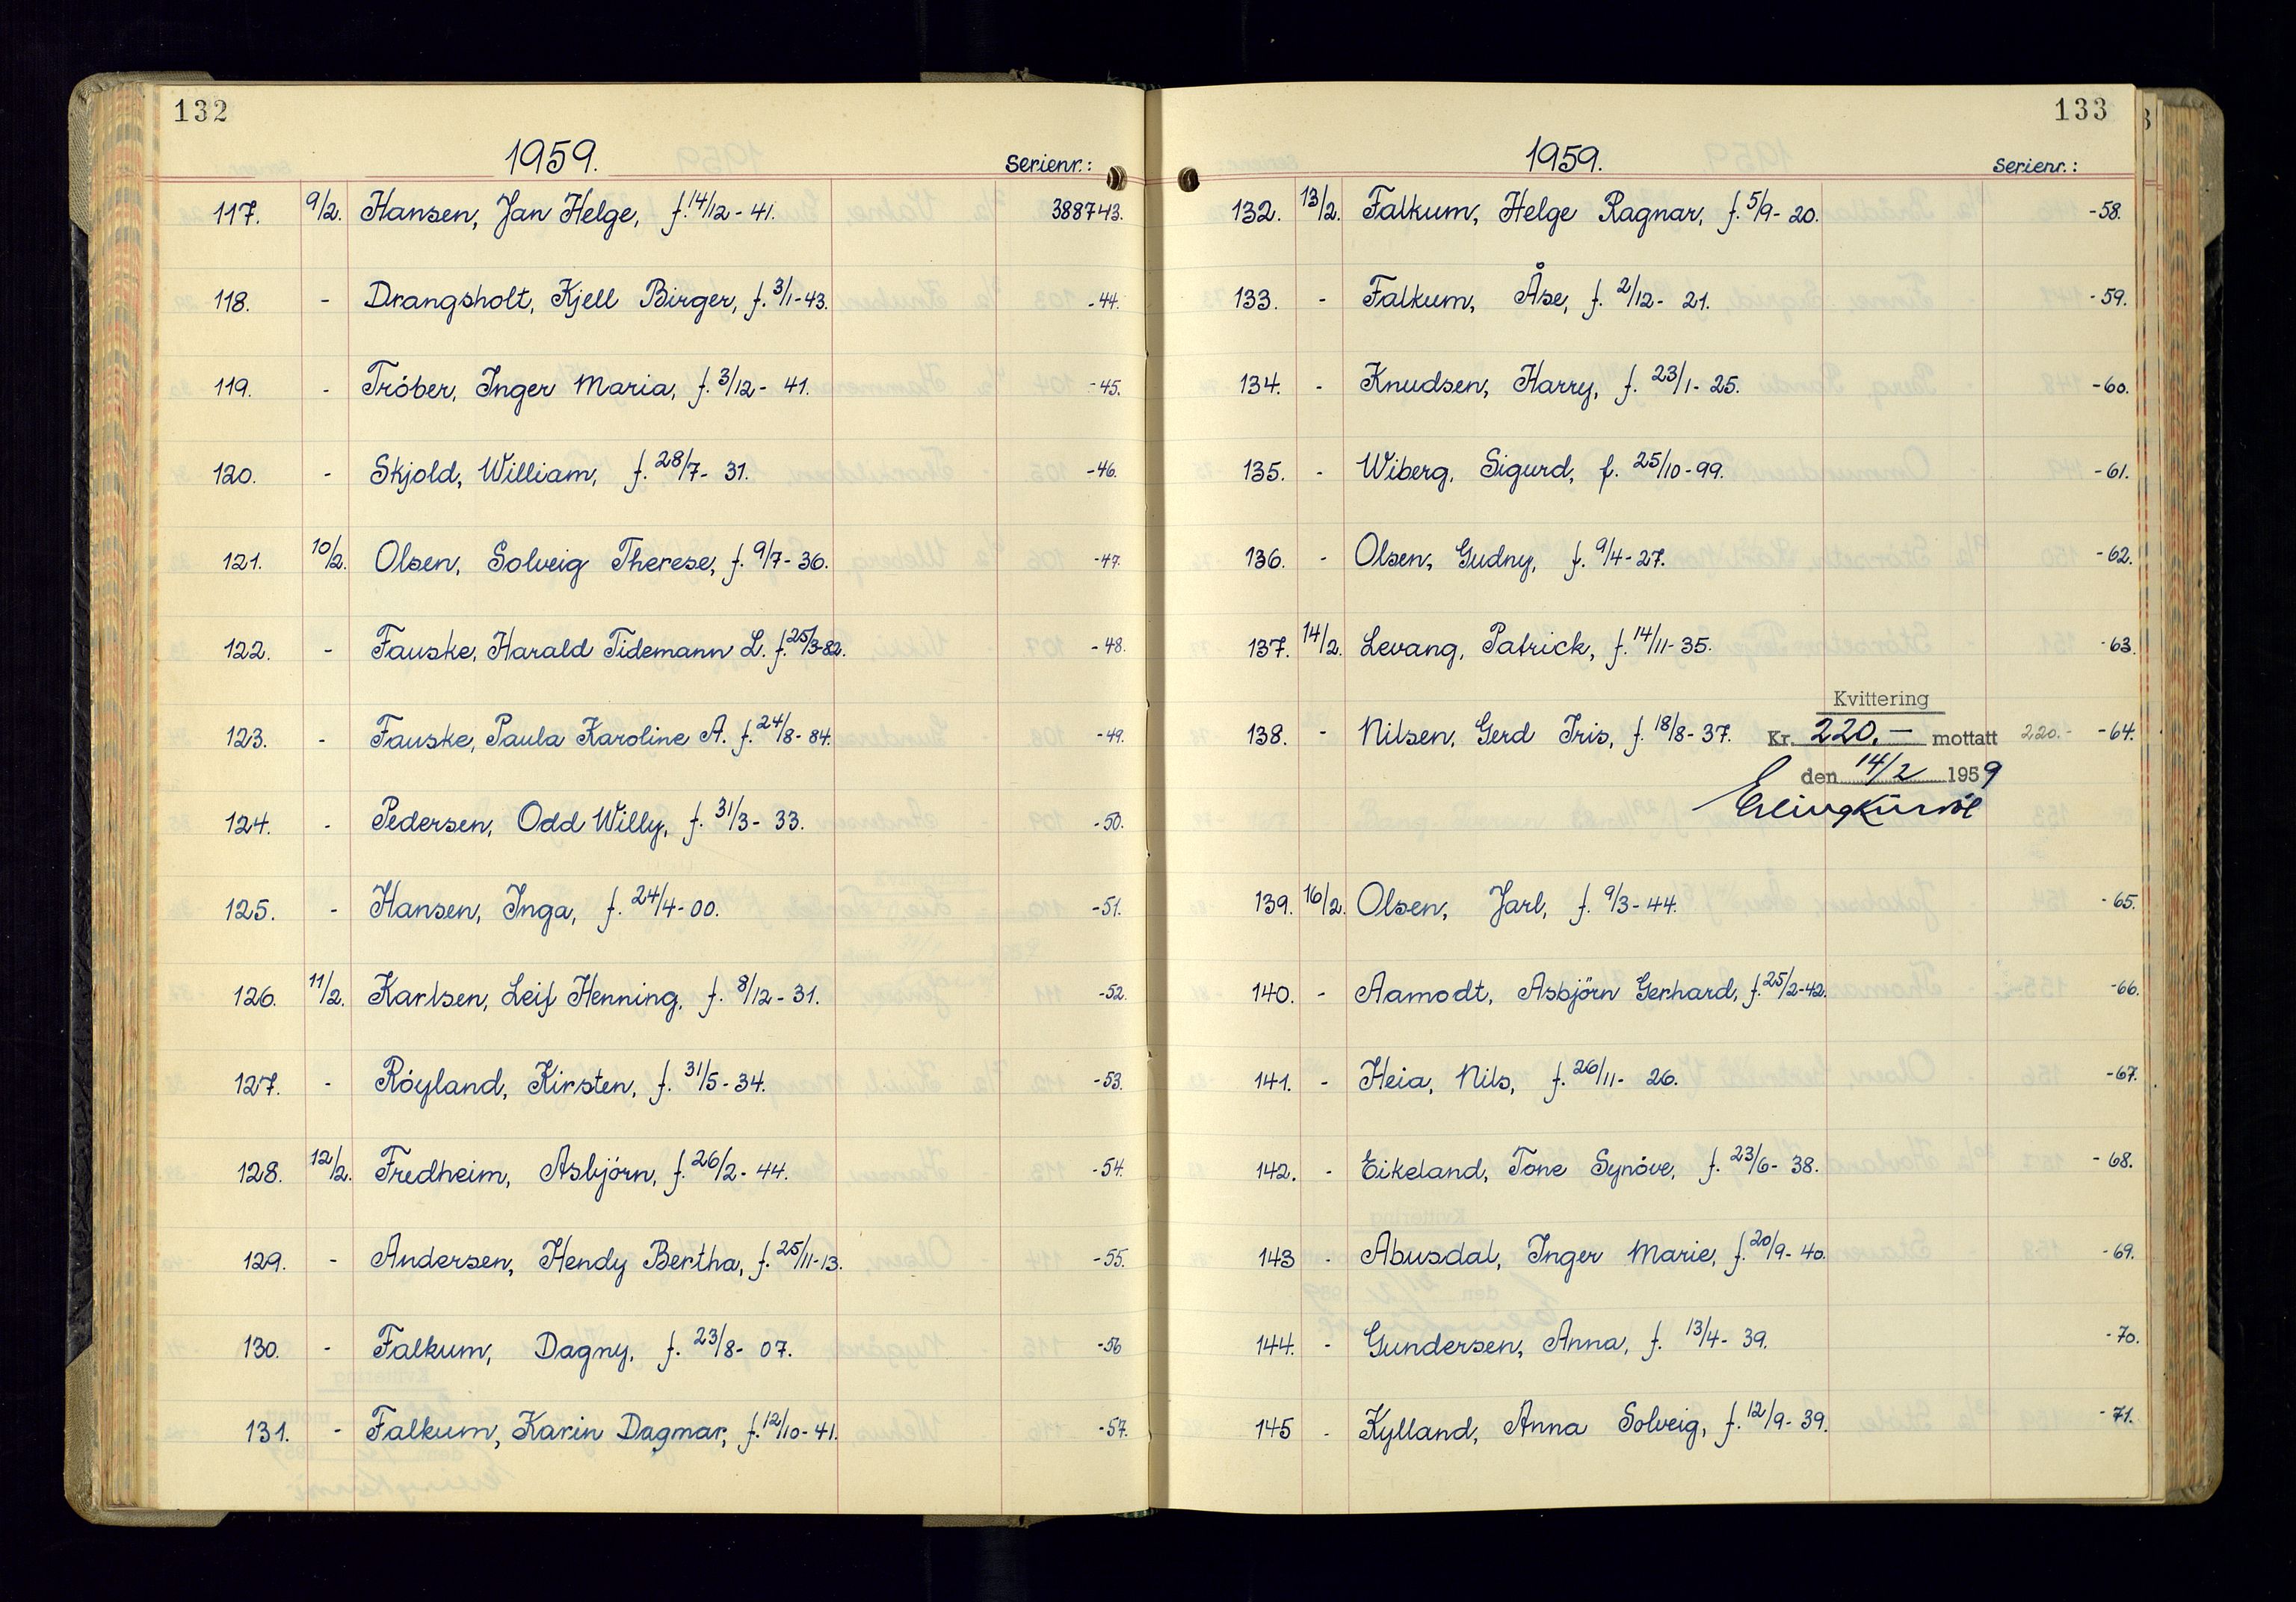 132
1959.
Serienr.:
117. 9/2. Hansen, Jan Helge, f. 14/12 - 41. 388743.
118. - Drangsholt, Kjell Birger, f. 3/1 - 43. -44.
119. - Tróber, Inger Maria, f. 3/12 - 41. -45.
120. - Skjold, William, f. 28/7 - 31. -46.
121. 10/2. Olsen, Solveig Therese, f. 9/7 - 36. -47.
122. - Fauske, Harald Tidemann L. f. 25/3-82. -48.
123. - Fauske, Paula Karoline A. f. 24/8 - 84. -49.
124. - Pedersen, Odd Willy, f. 31/3 - 33. -50.
125. - Hansen, Inga, f. 24/4 - 00. -51.
126. 11/2. Karlsen, Leif Henning, f. 8/12 - 31. -52.
127. - Róyland, Kirsten, f. 31/5 - 34. -53.
128. 12/2. Fredheim, Asbjórn, f. 26/2 - 44. -54.
129. - Andersen, Hendy Bertha, f. 25/11-13. -55.
130. - Falkum, Dagny, f. 23/8 - 07. -56
131. - Falkum, Karin Dagmar, f. 12/10 - 41. -57.
133
1959.
Serienr.:
132. 13/2. Falkum, Helge Ragnar, f. 5/9 - 20. -58.
133. - Falkum, Åse, f. 2/12 - 21. -59.
134. - Knudsen, Harry, f. 23/1 - 25. -60.
135. - Wiberg, Sigurd, f. 25/10 - 99. -61.
136. - Olsen, Gudny, f. 9/4 - 27. -62.
137. 14/2. Levang, Patrick, f. 14/11 - 35. -63.
Kvittering
138. - Nilsen, Gerd Iris, f. 18/8 - 37. Kr. 220.- mottatt 220.- -64.
den 14/2 1959
139. 16/2. Olsen, Jarl, f. 9/3 - 44. -65.
140. - Aamodt, Asbjörn Gerhard, f. 25/2-42. -66.
141. - Heia, Nils, f. 26/11 - 26. -67.
142. - Eikeland, Tone Synóve, f. 23/6 - 38. -68.
143 - Abusdal, Inger Marie, f. 20/9 - 40. -69.
144. - Gundersen, Anna, f. 13/4 - 39. -70.
145 - Kylland, Anna Solveig, f. 12/9 - 39. -71.